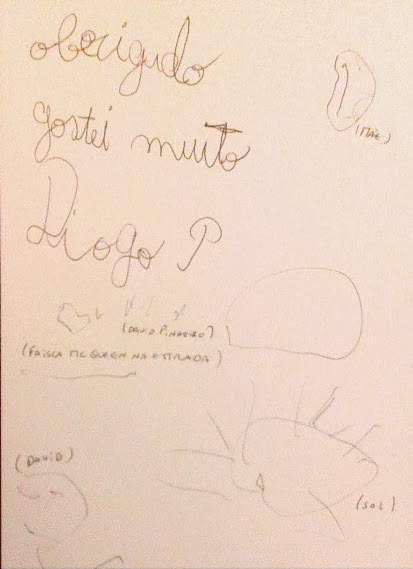 obrigado
(MÃE)
gostei muito
Diogo P
(DAVID PINHEIRO)
(FAISCA MC QUEEN NA ESTRADA)
(DAVID)
(SOL)